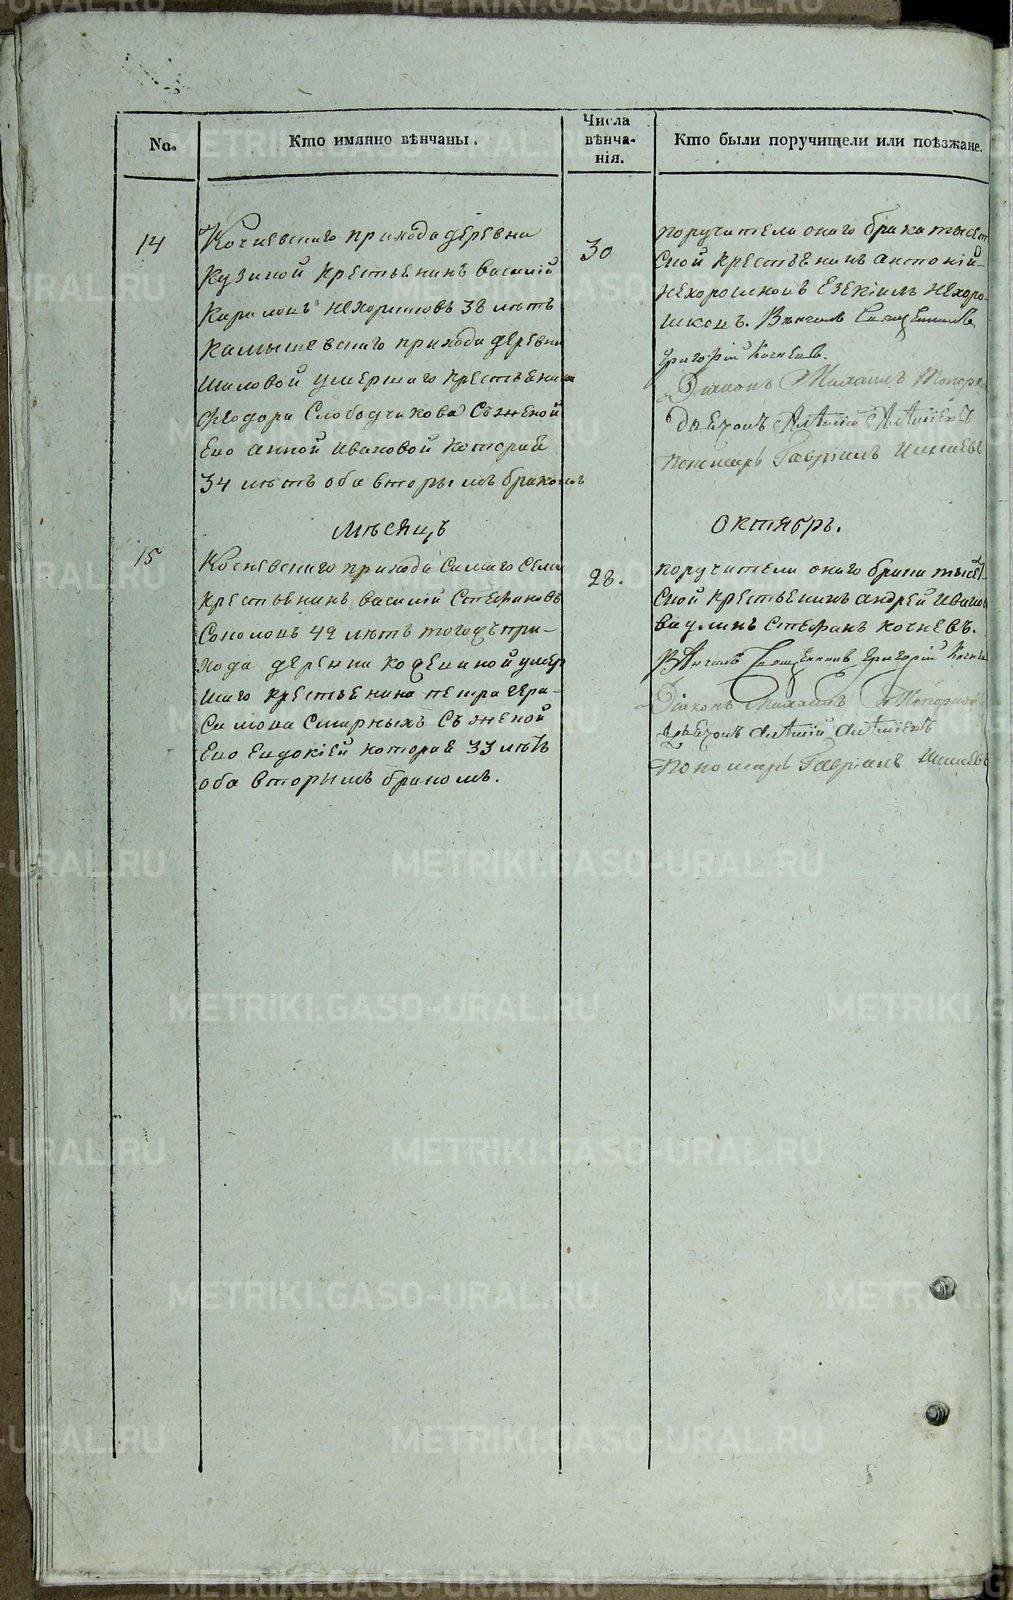 No.
Кто имянно вѣнчаны.
Числа
вѣнча-
нія.
Кто были поручители или поѣзжане.
14
Кочневскаго прихода деревни
Кузиной крестьенинъ василій
Нехорошковъ 38 лѣтъ
камышевскаго прихода деревни
Шиловой умершаго крестьенина
феодора Слободчикова съ женой
Ево анной ивановой которая
34 лѣтъ оба вторымъ бракомъ
30
поручители онаго брака тысет
ской крестьенинъ антоній
Нехорошковъ Езекіилъ Нехоро-
шковъ. Вѣнчалъ Священникъ
Григорій Кочневъ.
Діаконъ Михаилъ Топорк
дьячокъ
Пономарь Гавріилъ
Мѣсецъ
октябрь.
15
Кочневскаго прихода самаго села
крестьенинъ василій Стефановъ
Соколовъ 42 лѣтъ тогожъ при-
хода деревни
шаго крестьенина петра гера-
симова Смирныхъ съ женой
Ево Евдокіей которая 33 лѣтъ
оба вторымъ бракомъ.
28.
поручители онаго брака тысет
ской крестьенинъ андрей иванов
Стефанъ кочневъ.
Вѣнчалъ Священникъ Григорій Кочнев
Діаконъ Михаилъ Топорк
Дьячокъ
Пономарь Гавріилъ
METRIKI.GASO-URAL.RU